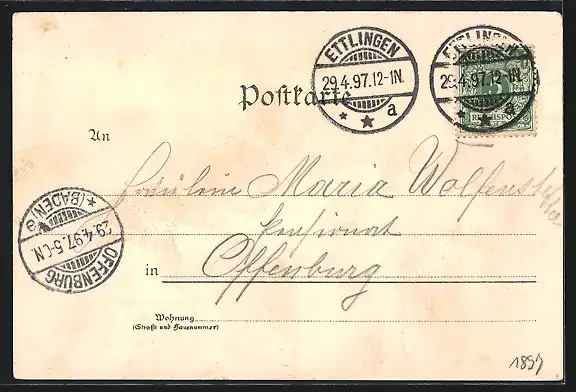 ETTLINGEN
29.4.97.12-1N.
a
ETTLINGEN
29.4.97.12-1N.
a
5
REICHSPOST
Postkarte
An
Fräulein Maria
Pensionat
(BADEN)
29.4.97.5-6N.
OFFENBURG
in Offenburg
Wohnung
(Straße und Hausnummer)
1897